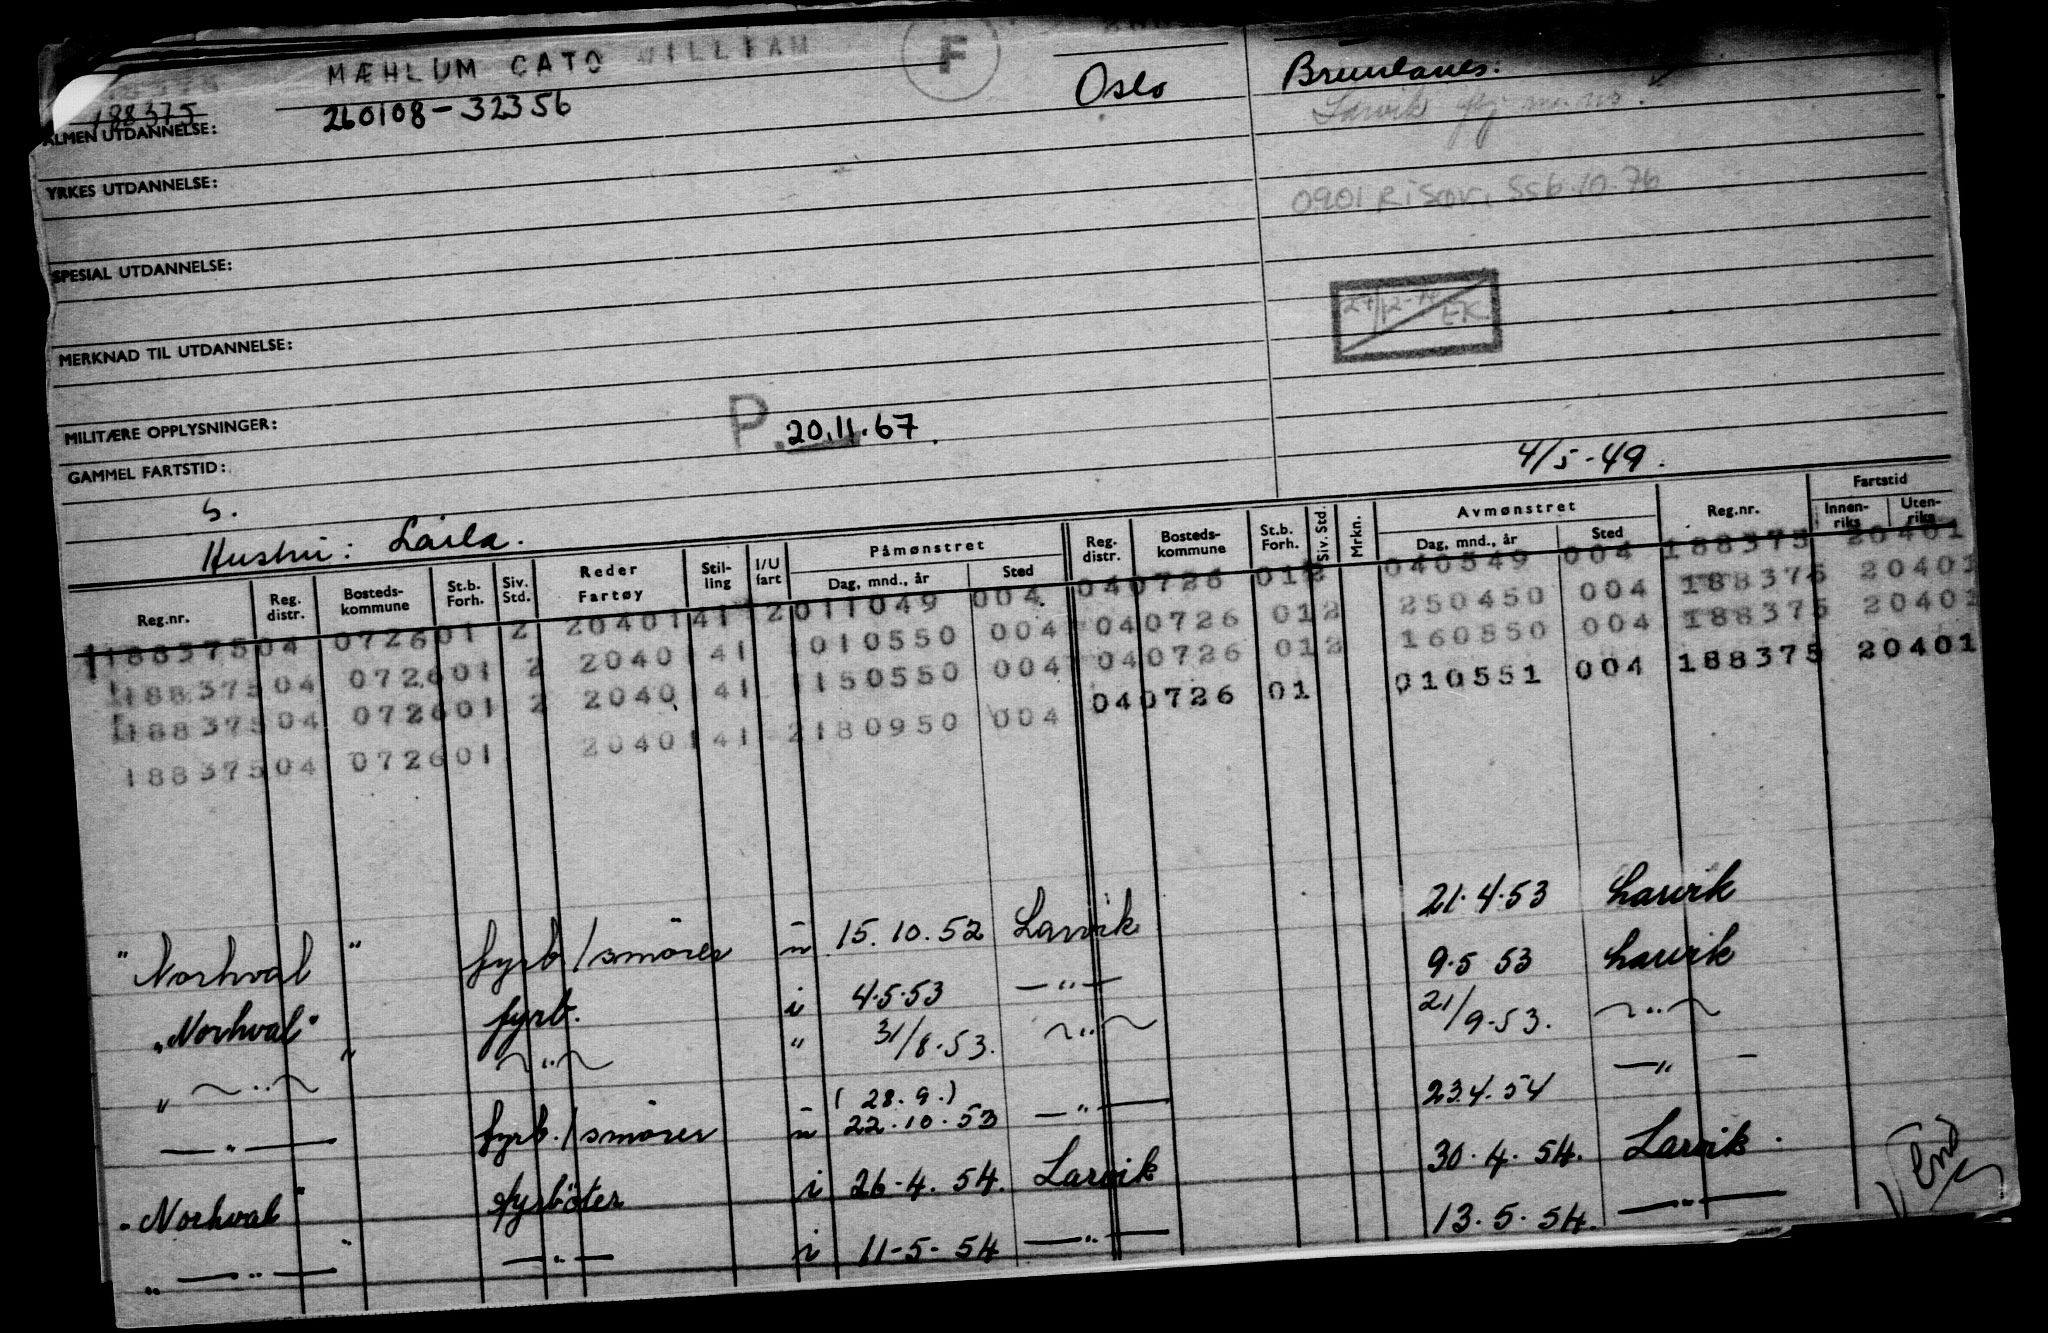 MÆHLUM CATO WILLIAM F Oslo Brunlanes:
188375 260108-32356 Larvik
ALMEN UTDANNELSE:
YRKES UTDANNELSE:
0901 Risør, Ssb. 10.76
SPESIAL UTDANNELSE:
EK
MERKNAD TIL UTDANNELSE:
MILITÆRE OPPLYSNINGER: P. 20.11.67.
GAMMEL FARTSTID: 4/5-49.
S.
Hustru: Laila.
Reg.nr. Reg. distr. Bosteds-kommune St.b. Forh. Siv. Std. Reder Fartøy Stil-ling I/U fart Påmønstret Dag, mnd., år Sted Reg. distr. Bosteds-kommune St.b. Forh. Siv. Std. Mrkn. Avmønstret Dag, mnd., år Sted Reg.nr. Fartstid Innen-riks Uten-riks
188375 04 0726 01 2 20401 41 2 011049 004 04 0726 01 2 040549 004 188375 20401
188375 04 0726 01 2 20401 41 010550 004 04 0726 01 2 250450 004 188375 20401
188375 04 0726 01 2 20401 41 1 150550 004 04 0726 01 2 160550 004 188375 20401
188375 04 0726 01 20401 41 2 180950 004 04 0726 01 010551 004 188375 20401
"Norhval" fyrb/smører u 15.10.52 Larvik 21.4.53 Larvik
"Norhval" fyrb. i 4.5.53 —"— 9.5 53 Larvik
" ~"~ " ~"~ " 31/8.53. ~"~ 21/9.53. ~"~
(28.9.)
—"— fyrb./smører u 22.10.53 —"— 23.4.54 —"—
"Norhval" fyrbøter i 26-4.54. Larvik 30.4.54. Larvik.
" —"— " —"— i 11-5-54 —"— 13.5.54. —"—